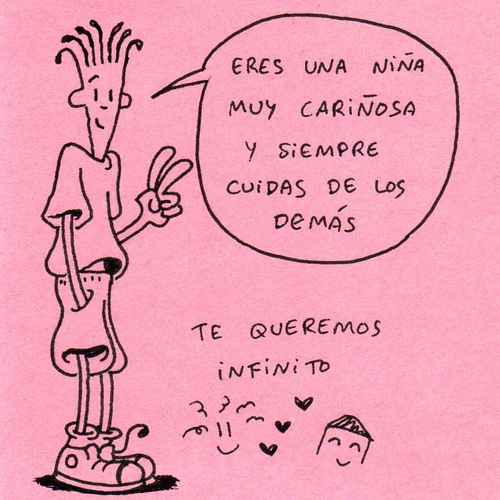 ERES UNA NIÑA
MUY CARIÑOSA
Y SIEMPRE
CUIDAS DE LOS
DEMÁS
TE QUEREMOS
INFINITO